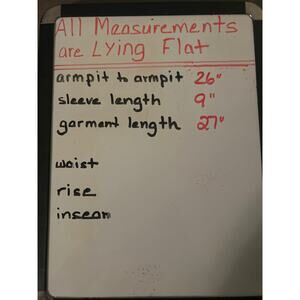 All Measurements
are Lying Flat
armpit to armpit 26"
sleeve length 9"
garment length 27"
waist
rise
inseam